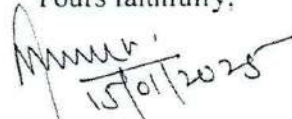 Yours faithfully,
15/01/2025